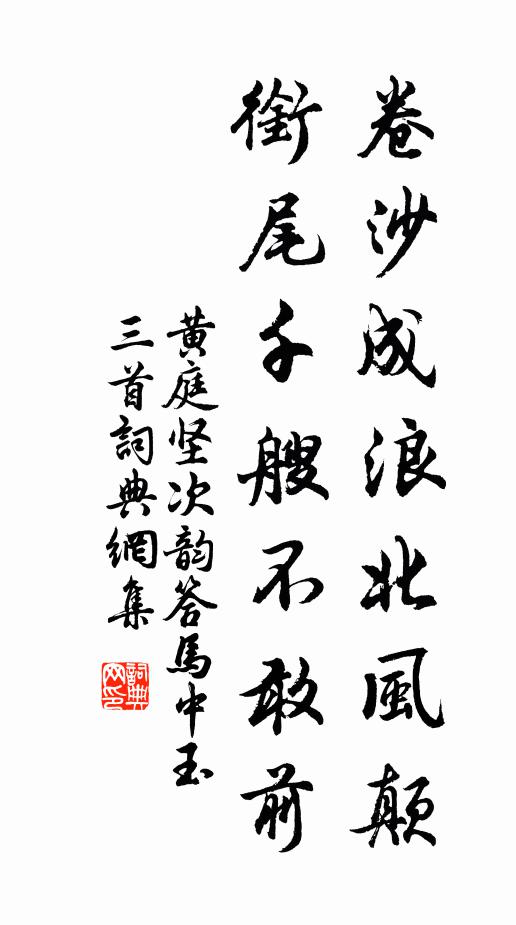 卷沙成浪北風顛
銜尾千艘不敢前
黄庭坚次韵答馬中玉
三首詞典網集
詞典网印